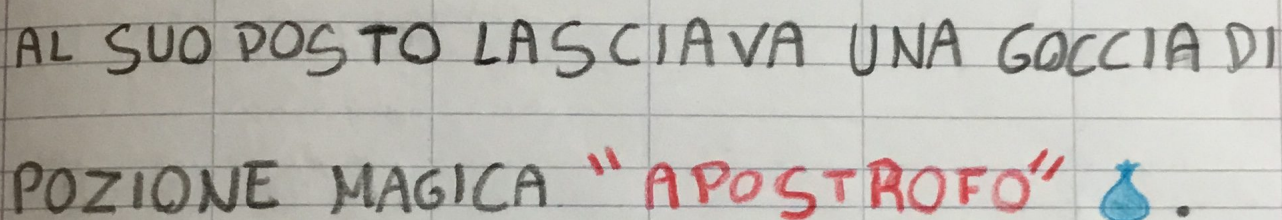 AL SUO POSTO LASCIAVA UNA GOCCIA DI
POZIONE MAGICA "APOSTROFO" .